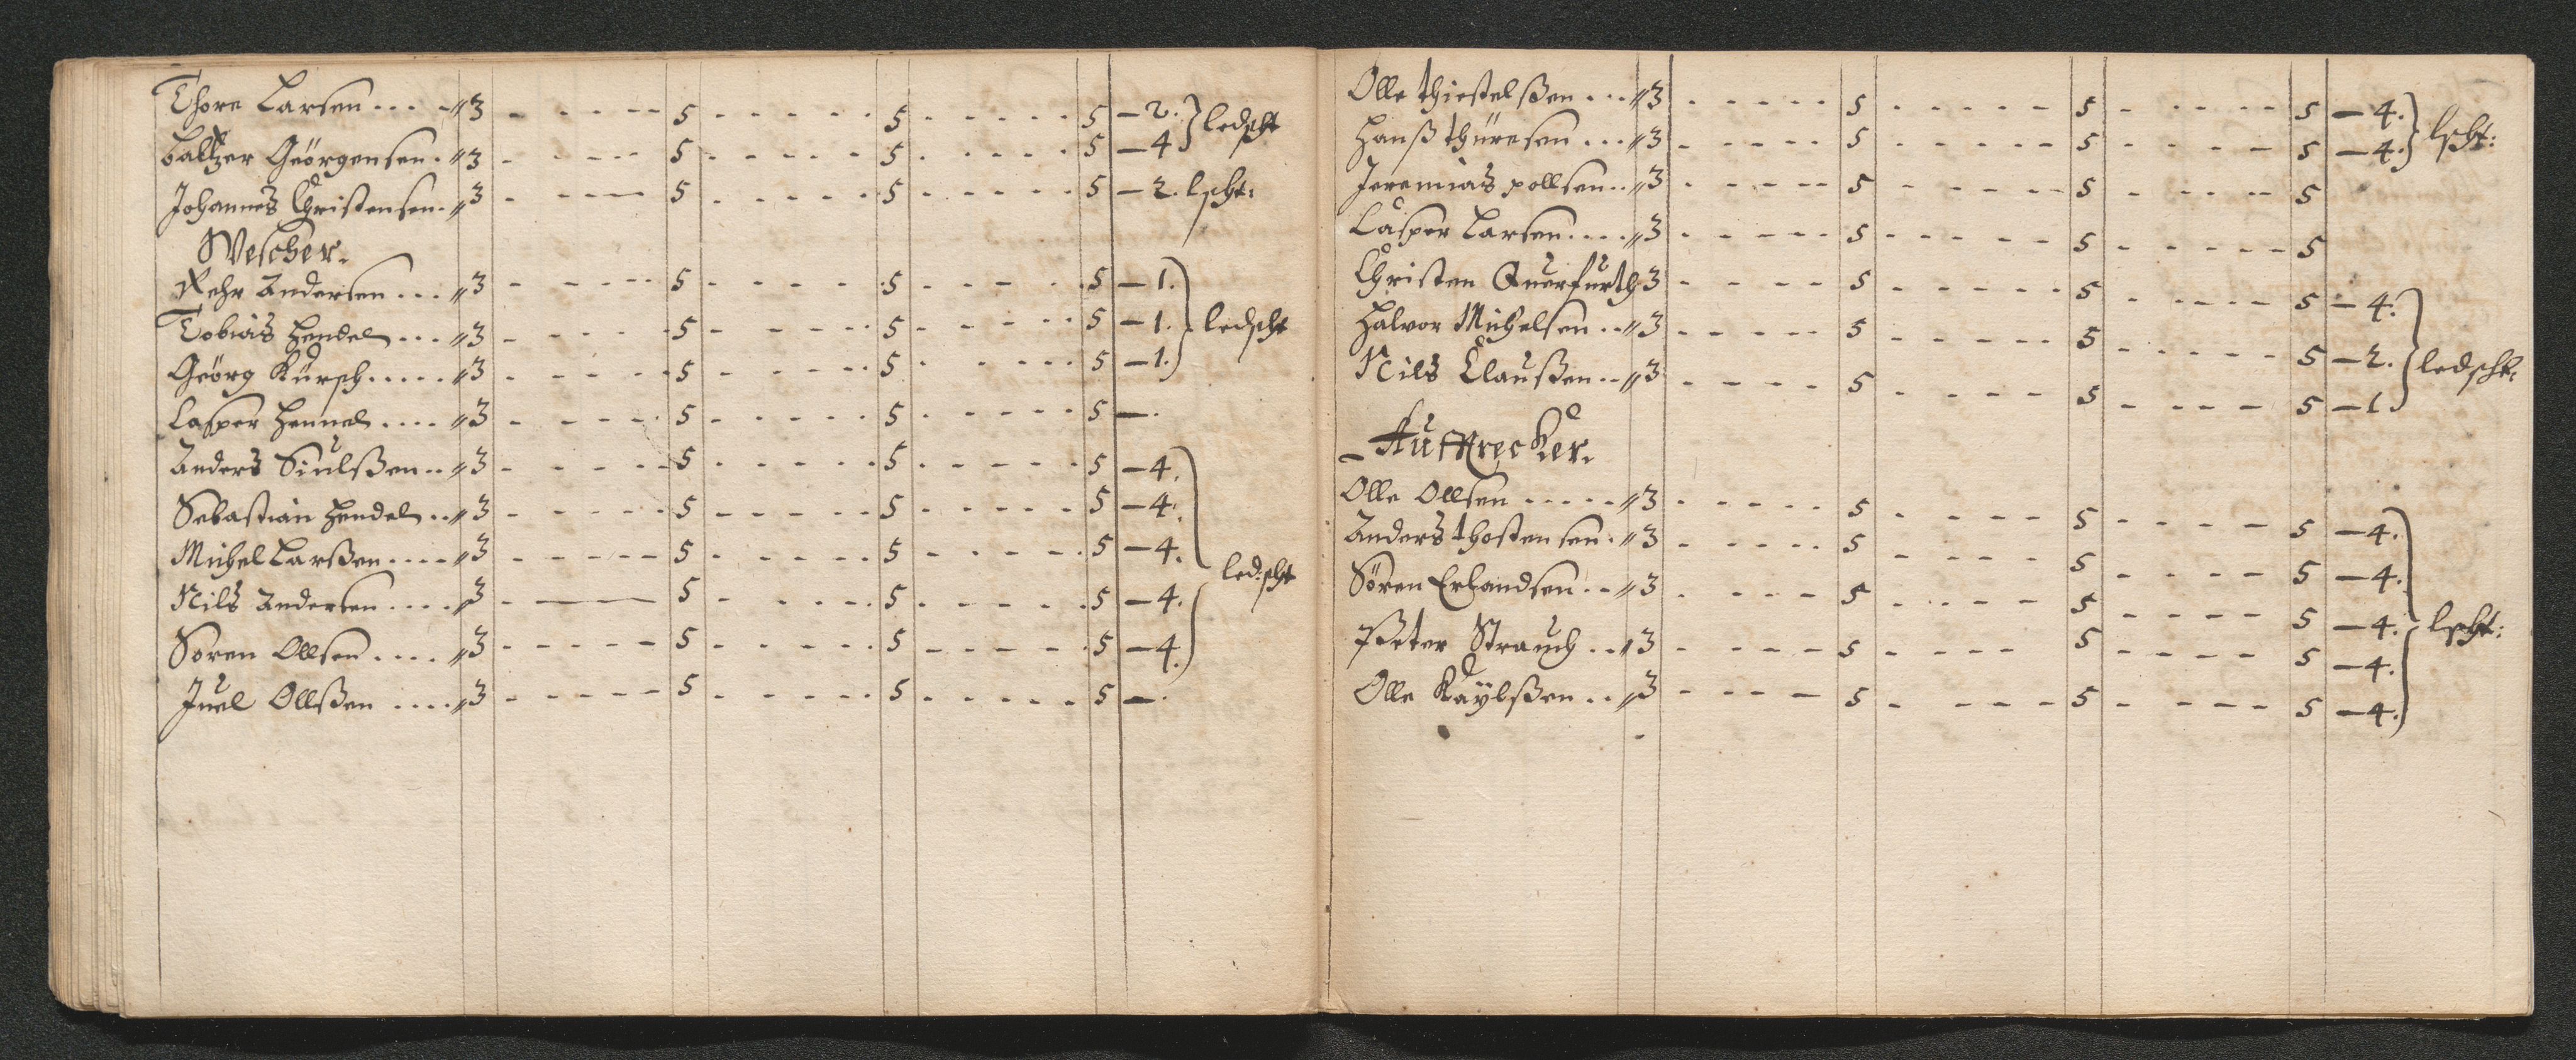 Thore Larsen .... 〃 3 - - - - - 5 - - - - - 5 - - - - - 5 — 2. } ledscht
Baltzer Geörgensen . 〃 3 - - - - 5 - - - - - 5 - - - - - 5 — 4
Johannes Christensen . 〃 3 - - - - 5 - - - - - 5 - - - - - 5 — 2. lscht:
Wescher.
Pehr Andersen ... 〃 3 - - - - - 5 - - - - - 5 - - - - - 5 — 1.
Tobias Hendel ... 〃 3 - - - - - 5 - - - - - 5 - - - - - 5 — 1. } ledscht
Geörg Kürsch ..... 〃 3 - - - - - 5 - - - - - 5 - - - - - 5 — 1.
Casper Hennel .... 〃 3 - - - - - 5 - - - - - 5 - - - - - 5 — .
Anders Siulßen .. 〃 3 - - - - - 5 - - - - - 5 - - - - - 5 — 4.
Sebastian Hendel .. 〃 3 - - - - - 5 - - - - - 5 - - - - - 5 — 4.
Michel Larßen .... 〃 3 - - - - - 5 - - - - - 5 - - - - - 5 — 4. } led:scht
Nils Andersen .... 〃 3 - — 5 - - - - - 5 - - - - - 5 — 4.
Sören Ollsen .... 〃 3 - - - - - 5 - - - - - 5 - - - - - 5 — 4.
Juel Ollßen .... 〃 3 - - - - - 5 - - - - - 5 - - - - - 5 — .
Olle thiestelßen ... 〃 3 - - - - - 5 - - - - - 5 - - - - - 5 — 4. } lscht:
Hanß thüresen ... 〃 3 - - - - - 5 - - - - - 5 - - - - - 5 — 4.
Jeremias pollsen .. 〃 3 - - - - - 5 - - - - - 5 - - - - - 5
Casper Larsen .... 〃 3 - - - - - 5 - - - - - 5 - - - - - 5
Christen Querfurth 3 - - - - - 5 - - - - - 5 - - - - - 5 — 4.
Halvor Michelsen .. 〃 3 - - - - - 5 - - - - - 5 - - - - - 5 — 2. } ledscht:
Nils Claußen .. 〃 3 - - - - 5 - - - - 5 - - - - 5 — 1
Auffrecker.
Olle Ollsen ..... 〃 3 - - - - - 5 - - - - 5 - - - - 5 — 4.
Anders thostensen . 〃 3 - - - - - 5 - - - - 5 - - - - 5 — 4.
Sören Erlandsen .. 〃 3 - - - - 5 - - - - 5 - - - - 5 — 4. } lscht:
Peter Strauch .. 〃 3 - - - - 5 - - - - 5 - - - - 5 — 4.
Olle Käylßen .. 〃 3 - - - - 5 - - - - 5 - - - - 5 — 4.